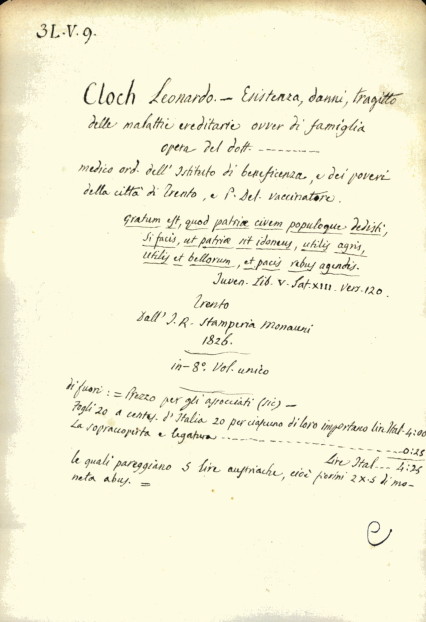 3L.V.9.
Cloch Leonardo. — Esistenza, danni, tragitto
delle malattie ereditarie ovver di famiglia
opera del dott. --------
medico ord. dell' Istituto di beneficenza, e dei poveri
della città di Trento, e P. Del. vaccinatore.
Gratum est, quod patriæ civem populoque dedisti,
Si facis, ut patriæ sit idoneus, utilis agris,
Utilis et bellorum, et pacis rebus agendis.
Juven. Lib. V. Sat. XIII. Vers. 120.
Trento
Dall' I. R. Stamperia Monauni
1826.
in-8º. Vol. unico
di fuori: = Prezzo per gli associati (sic) —
Fogli 20 a centes. d'Italia 20 per ciascuno di loro importano lire Ital. 4:00
La sopraccoperta e legatura --------- 0:25
Lire Ital. -- 4:25
le quali pareggiano 5 lire austriache, cioè fiorini 2 X. 5 di mo-
neta abus. =